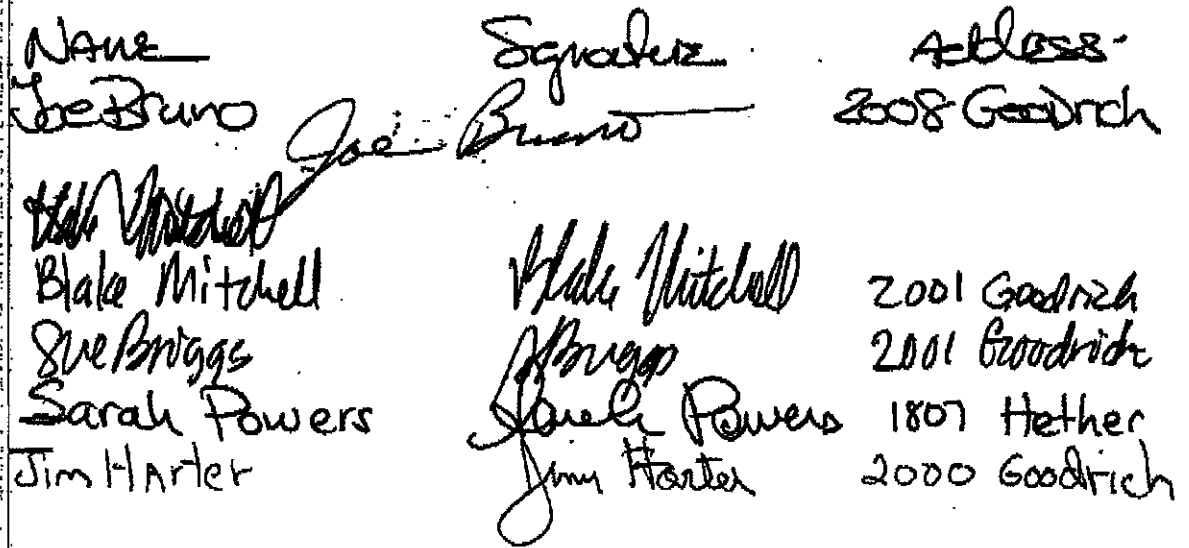 NAME Signature Address
Joe Bruno Joe Bruno 2008 Goodrich
Blake Mitchell
Blake Mitchell Blake Mitchell 2001 Goodrich
Sue Briggs SBriggs 2001 Goodrich
Sarah Powers Sarah Powers 1807 Hether
Jim Harter Jim Harter 2000 Goodrich